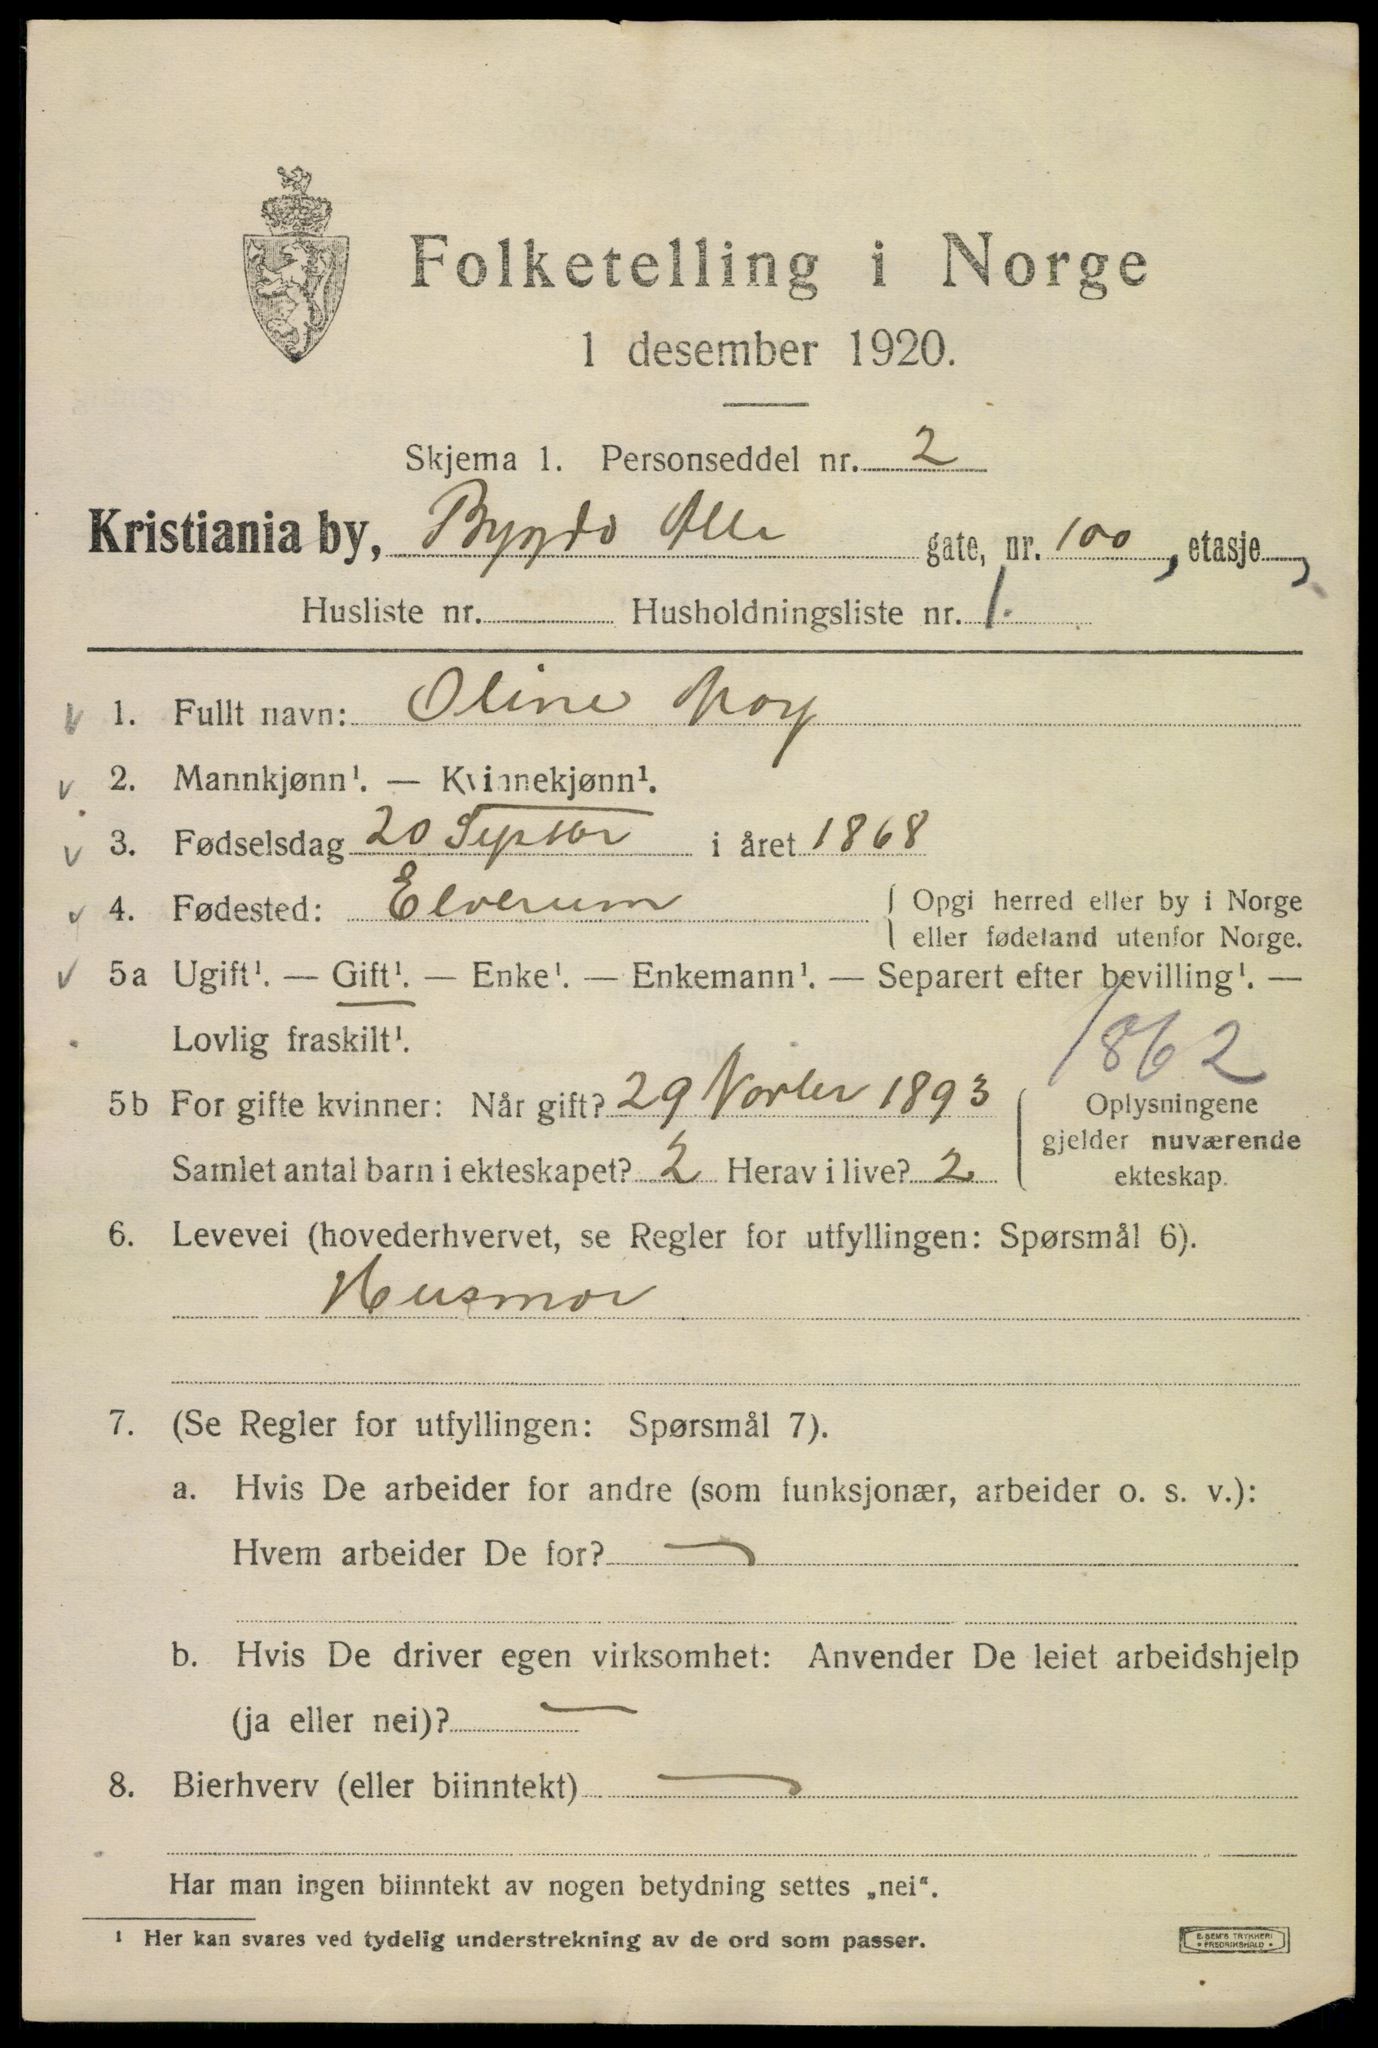 Folketelling i Norge
1 desember 1920.
Skjema 1. Personseddel nr. 2
Kristiania by, Bygdø Alle gate, nr. 100, etasje
Husliste nr. Husholdningsliste nr. 1.
1. Fullt navn: Oline
2. Mannkjønn¹. — Kvinnekjønn¹.
3. Fødselsdag 20 Septbr i året 1868
4. Fødested: Elverum { Opgi herred eller by i Norge
eller fødeland utenfor Norge.
5a Ugift¹. — Gift¹. — Enke¹. — Enkemann¹. — Separert efter bevilling¹. —
Lovlig fraskilt¹.
1862
5b For gifte kvinner: Når gift? 29 Novber 1893 { Oplysningene
gjelder nuværende
Samlet antal barn i ekteskapet? 2 Herav i live? 2 ekteskap.
6. Levevei (hovederhvervet, se Regler for utfyllingen: Spørsmål 6).
Husmor
7. (Se Regler for utfyllingen: Spørsmål 7).
a. Hvis De arbeider for andre (som funksjonær, arbeider o. s. v.):
Hvem arbeider De for? —
b. Hvis De driver egen virksomhet: Anvender De leiet arbeidshjelp
(ja eller nei)? —
8. Bierhverv (eller biinntekt) —
Har man ingen biinntekt av nogen betydning settes „nei“.
¹ Her kan svares ved tydelig understrekning av de ord som passer.
E. SEM'S TRYKKERI
• FREDRIKSHALD •